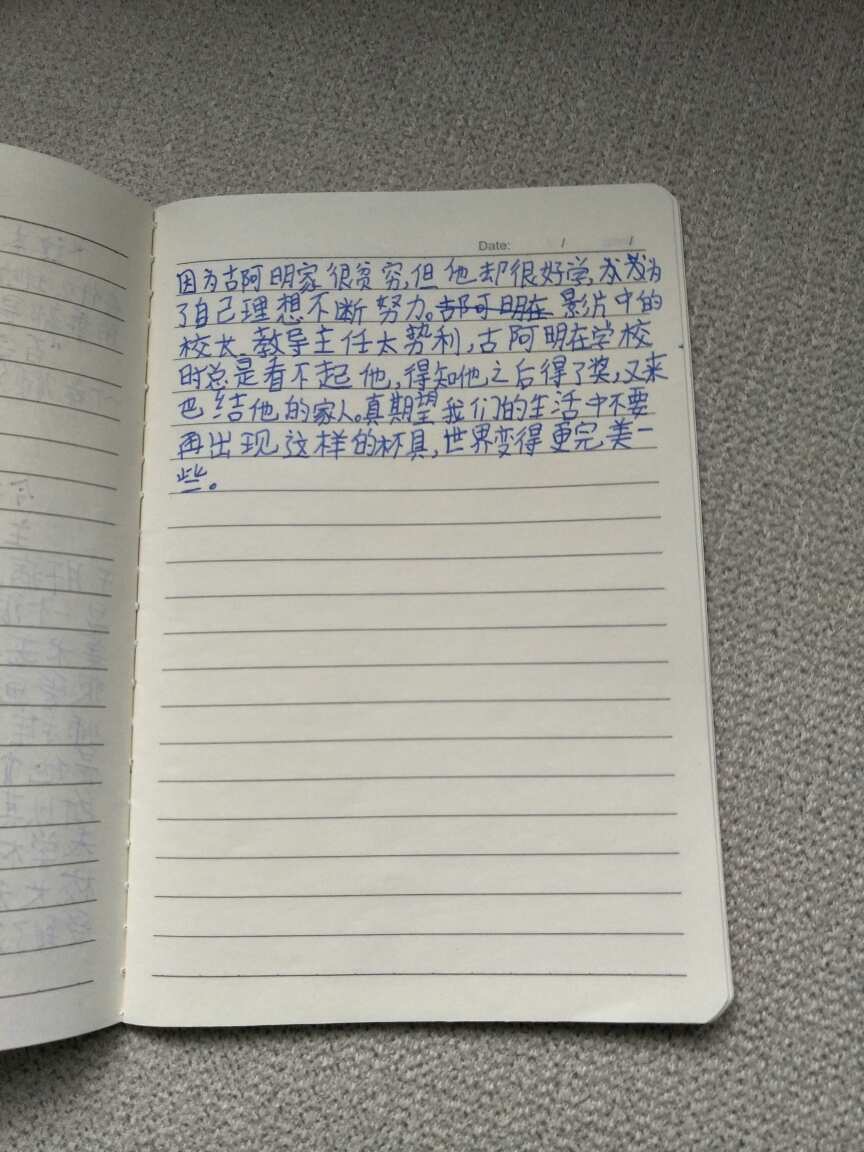 Date: / /
因为古阿明家很贫穷,但他却很好学,为
了自己理想不断努力。影片中的
校长、教导主任太势利,古阿明在学校
时总是看不起他,得知他之后得了奖,又来
巴结他的家人。真期望我们的生活中不要
再出现这样的杯具,世界变得更完美一
些。